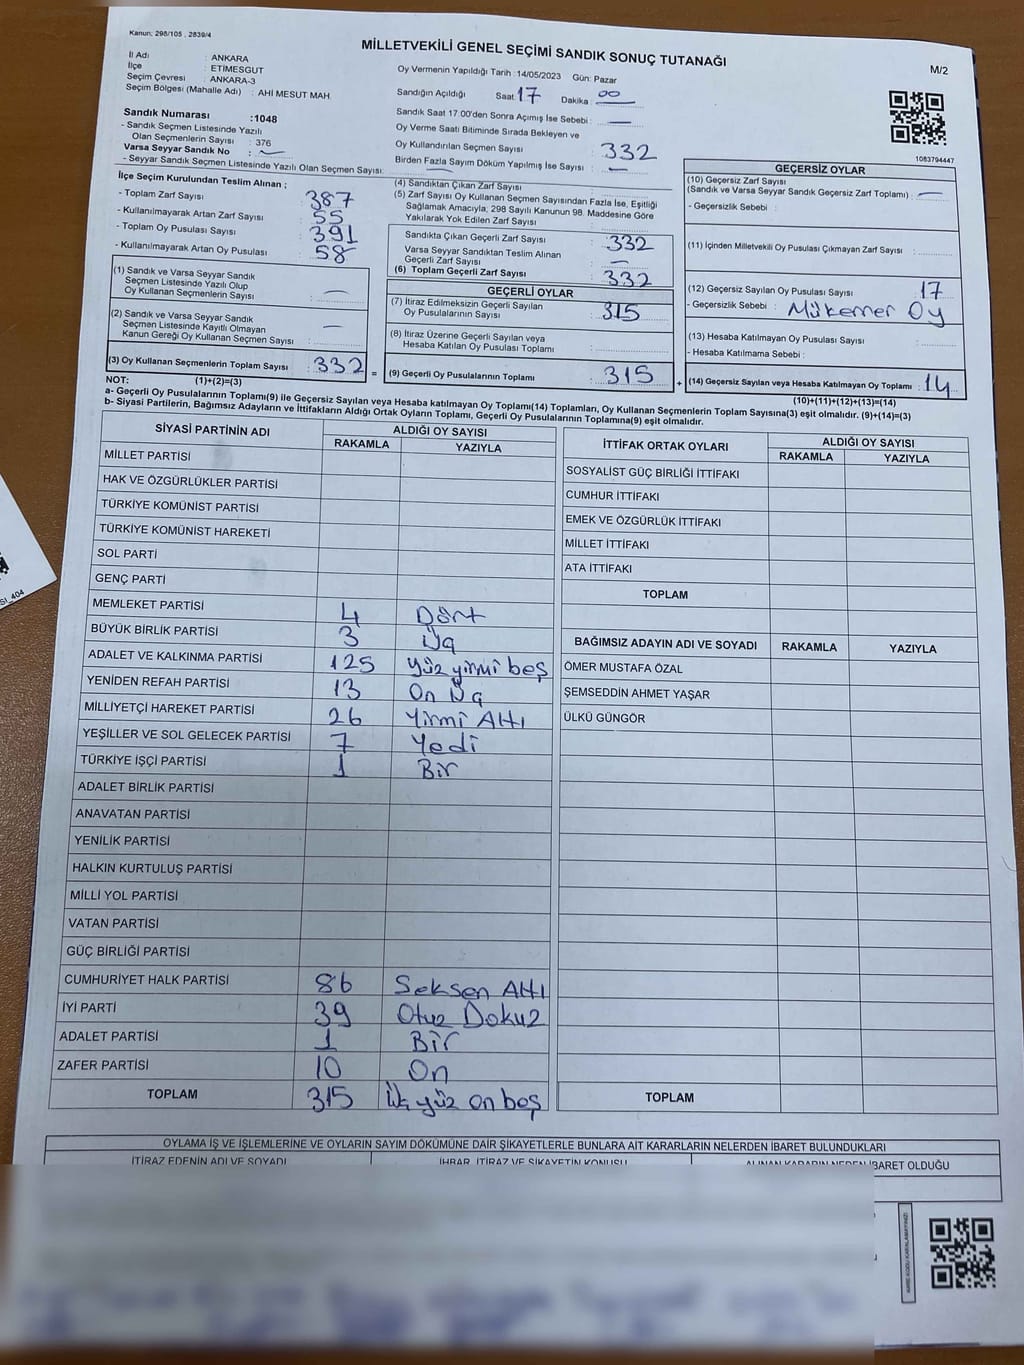 Kanun; 298/105 , 2839/4
MİLLETVEKİLİ GENEL SEÇİMİ SANDIK SONUÇ TUTANAĞI
M/2
İl Adı : ANKARA
İlçe : ETİMESGUT
Seçim Çevresi : ANKARA-3
Seçim Bölgesi (Mahalle Adı) : AHİ MESUT MAH.
Sandık Numarası :1048
- Sandık Seçmen Listesinde Yazılı
Olan Seçmenlerin Sayısı : 376
Varsa Seyyar Sandık No : —
- Seyyar Sandık Seçmen Listesinde Yazılı Olan Seçmen Sayısı: —
Oy Vermenin Yapıldığı Tarih : 14/05/2023 Gün: Pazar
Sandığın Açıldığı Saat 17 Dakika : 00
Sandık Saat 17:00'den Sonra Açımış İse Sebebi : —
Oy Verme Saati Bitiminde Sırada Bekleyen ve
Oy Kullandırılan Seçmen Sayısı : 332
Birden Fazla Sayım Döküm Yapılmış İse Sayısı : —
1083794447
İlçe Seçim Kurulundan Teslim Alınan ;
- Toplam Zarf Sayısı : 387
- Kullanılmayarak Artan Zarf Sayısı : 55
- Toplam Oy Pusulası Sayısı : 391
- Kullanılmayarak Artan Oy Pusulası : 58
(1) Sandık ve Varsa Seyyar Sandık
Seçmen Listesinde Yazılı Olup
Oy Kullanan Seçmenlerin Sayısı : —
(2) Sandık ve Varsa Seyyar Sandık
Seçmen Listesinde Kayıtlı Olmayan
Kanun Gereği Oy Kullanan Seçmen Sayısı : —
(3) Oy Kullanan Seçmenlerin Toplam Sayısı : 332 =
(4) Sandıktan Çıkan Zarf Sayısı :
(5) Zarf Sayısı Oy Kullanan Seçmen Sayısından Fazla İse, Eşitliği
Sağlamak Amacıyla; 298 Sayılı Kanunun 98. Maddesine Göre
Yakılarak Yok Edilen Zarf Sayısı :
Sandıkta Çıkan Geçerli Zarf Sayısı : 332
Varsa Seyyar Sandıktan Teslim Alınan
Geçerli Zarf Sayısı : —
(6) Toplam Geçerli Zarf Sayısı : 332
GEÇERLİ OYLAR
(7) İtiraz Edilmeksizin Geçerli Sayılan
Oy Pusulalarının Sayısı : 315
(8) İtiraz Üzerine Geçerli Sayılan veya
Hesaba Katılan Oy Pusulası Toplamı :
(9) Geçerli Oy Pusulalarının Toplamı : 315 +
GEÇERSİZ OYLAR
(10) Geçersiz Zarf Sayısı
(Sandık ve Varsa Seyyar Sandık Geçersiz Zarf Toplamı) : —
- Geçersizlik Sebebi :
(11) İçinden Milletvekili Oy Pusulası Çıkmayan Zarf Sayısı :
(12) Geçersiz Sayılan Oy Pusulası Sayısı : 17
- Geçersizlik Sebebi : Mükerrer Oy
(13) Hesaba Katılmayan Oy Pusulası Sayısı :
- Hesaba Katılmama Sebebi :
(14) Geçersiz Sayılan veya Hesaba Katılmayan Oy Toplamı : 14
NOT: (1)+(2)=(3)
(10)+(11)+(12)+(13)=(14)
a- Geçerli Oy Pusulalarının Toplamı(9) ile Geçersiz Sayılan veya Hesaba katılmayan Oy Toplamı(14) Toplamları, Oy Kullanan Seçmenlerin Toplam Sayısına(3) eşit olmalıdır. (9)+(14)=(3)
b- Siyasi Partilerin, Bağımsız Adayların ve İttifakların Aldığı Ortak Oyların Toplamı, Geçerli Oy Pusulalarının Toplamına(9) eşit olmalıdır.
SİYASİ PARTİNİN ADI ALDIĞI OY SAYISI
RAKAMLA YAZIYLA
MİLLET PARTİSİ
HAK VE ÖZGÜRLÜKLER PARTİSİ
TÜRKİYE KOMÜNİST PARTİSİ
TÜRKİYE KOMÜNİST HAREKETİ
SOL PARTİ
GENÇ PARTİ
MEMLEKET PARTİSİ 4 Dört
BÜYÜK BİRLİK PARTİSİ 3 Üç
ADALET VE KALKINMA PARTİSİ 125 Yüz yirmi beş
YENİDEN REFAH PARTİSİ 13 On Üç
MİLLİYETÇİ HAREKET PARTİSİ 26 Yirmi Altı
YEŞİLLER VE SOL GELECEK PARTİSİ 7 Yedi
TÜRKİYE İŞÇİ PARTİSİ 1 Bir
ADALET BİRLİK PARTİSİ
ANAVATAN PARTİSİ
YENİLİK PARTİSİ
HALKIN KURTULUŞ PARTİSİ
MİLLİ YOL PARTİSİ
VATAN PARTİSİ
GÜÇ BİRLİĞİ PARTİSİ
CUMHURİYET HALK PARTİSİ 86 Seksen Altı
İYİ PARTİ 39 Otuz Dokuz
ADALET PARTİSİ 1 Bir
ZAFER PARTİSİ 10 On
TOPLAM 315 Üç yüz on beş
İTTİFAK ORTAK OYLARI ALDIĞI OY SAYISI
RAKAMLA YAZIYLA
SOSYALİST GÜÇ BİRLİĞİ İTTİFAKI
CUMHUR İTTİFAKI
EMEK VE ÖZGÜRLÜK İTTİFAKI
MİLLET İTTİFAKI
ATA İTTİFAKI
TOPLAM
BAĞIMSIZ ADAYIN ADI VE SOYADI RAKAMLA YAZIYLA
ÖMER MUSTAFA ÖZAL
ŞEMSEDDİN AHMET YAŞAR
ÜLKÜ GÜNGÖR
TOPLAM
OYLAMA İŞ VE İŞLEMLERİNE VE OYLARIN SAYIM DÖKÜMÜNE DAİR ŞİKAYETLERLE BUNLARA AİT KARARLARIN NELERDEN İBARET BULUNDUKLARI
İTİRAZ EDENİN ADI VE SOYADI İHBAR, İTİRAZ VE ŞİKAYETİN KONUSU ALINAN KARARIN NEDEN İBARET OLDUĞU
KARE KODU KARALAMAYINIZ!
SI_404